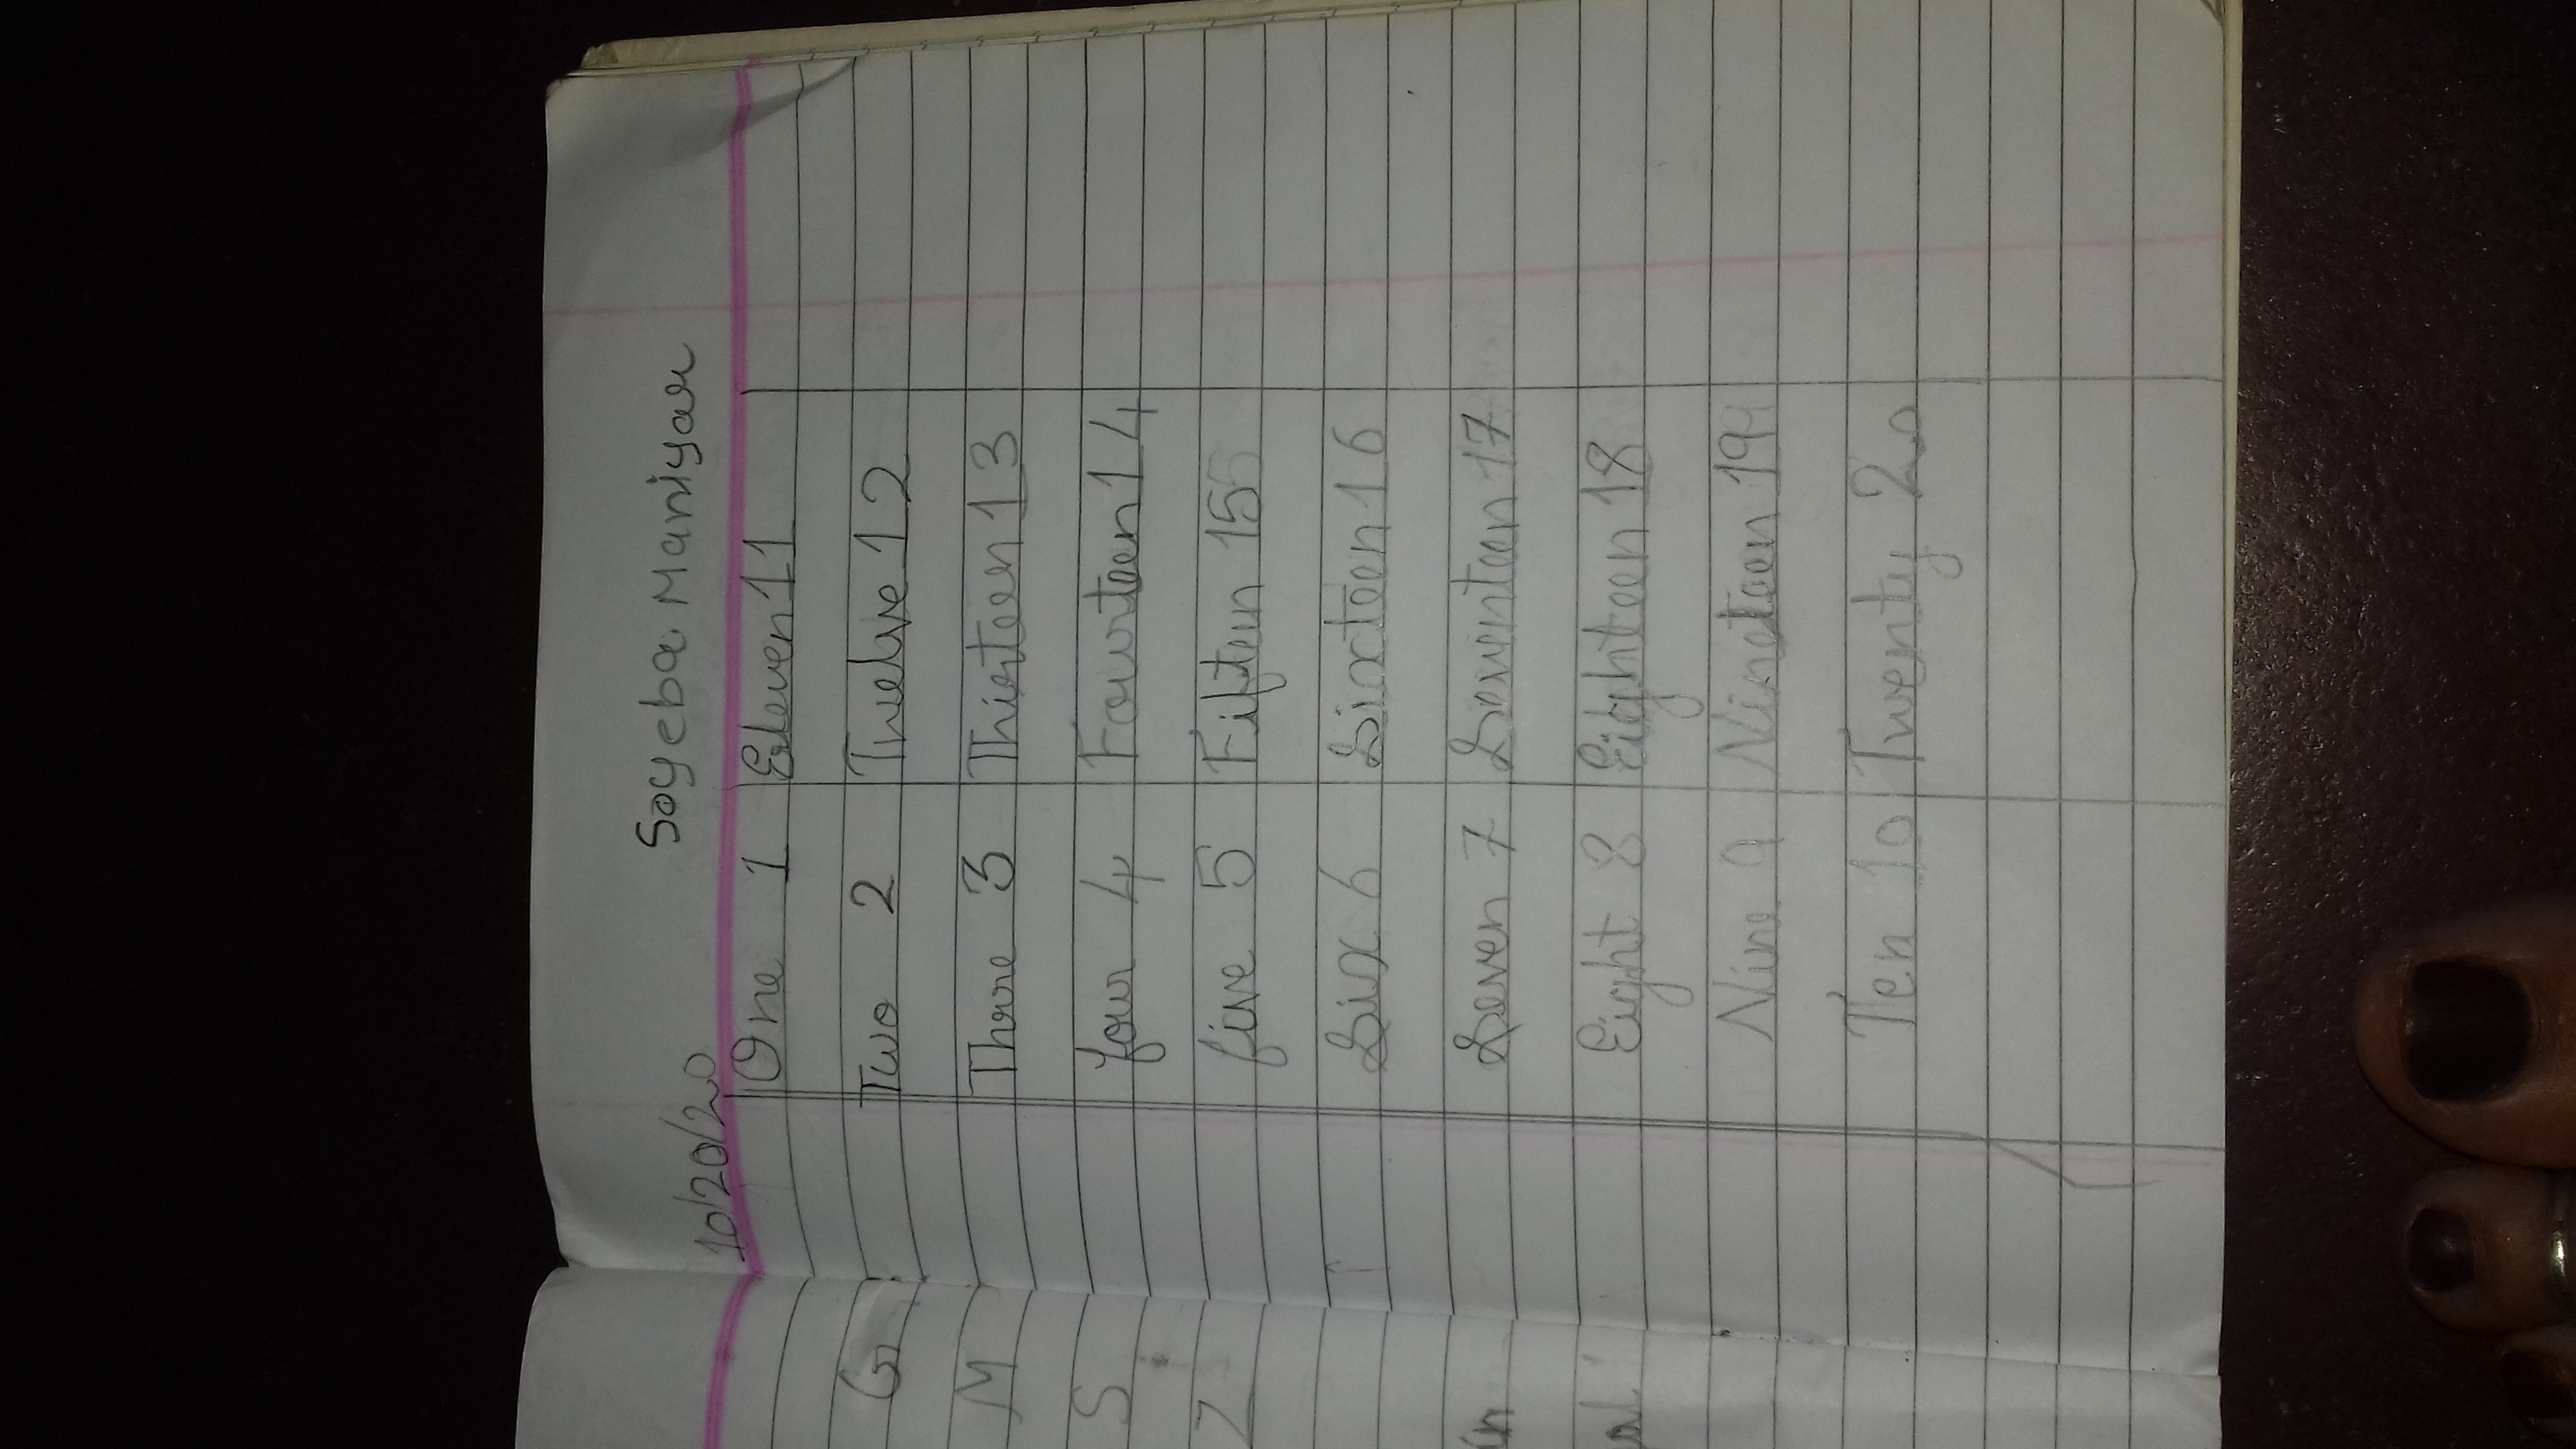 Sayeba Maniyar
10/20/20
One 1 Eeleven 11
Two 2 Twelve 12
Three 3 Thirteen 13
four 4 Fourteen 14
five 5 Fifteen 15
Six 6 Sixteen 16
Seven 7 Seventeen 17
Eight 8 Eighteen 18
Nine 9 Nineteen 19
Ten 10 Twenty 20
G
M
S
Z
in